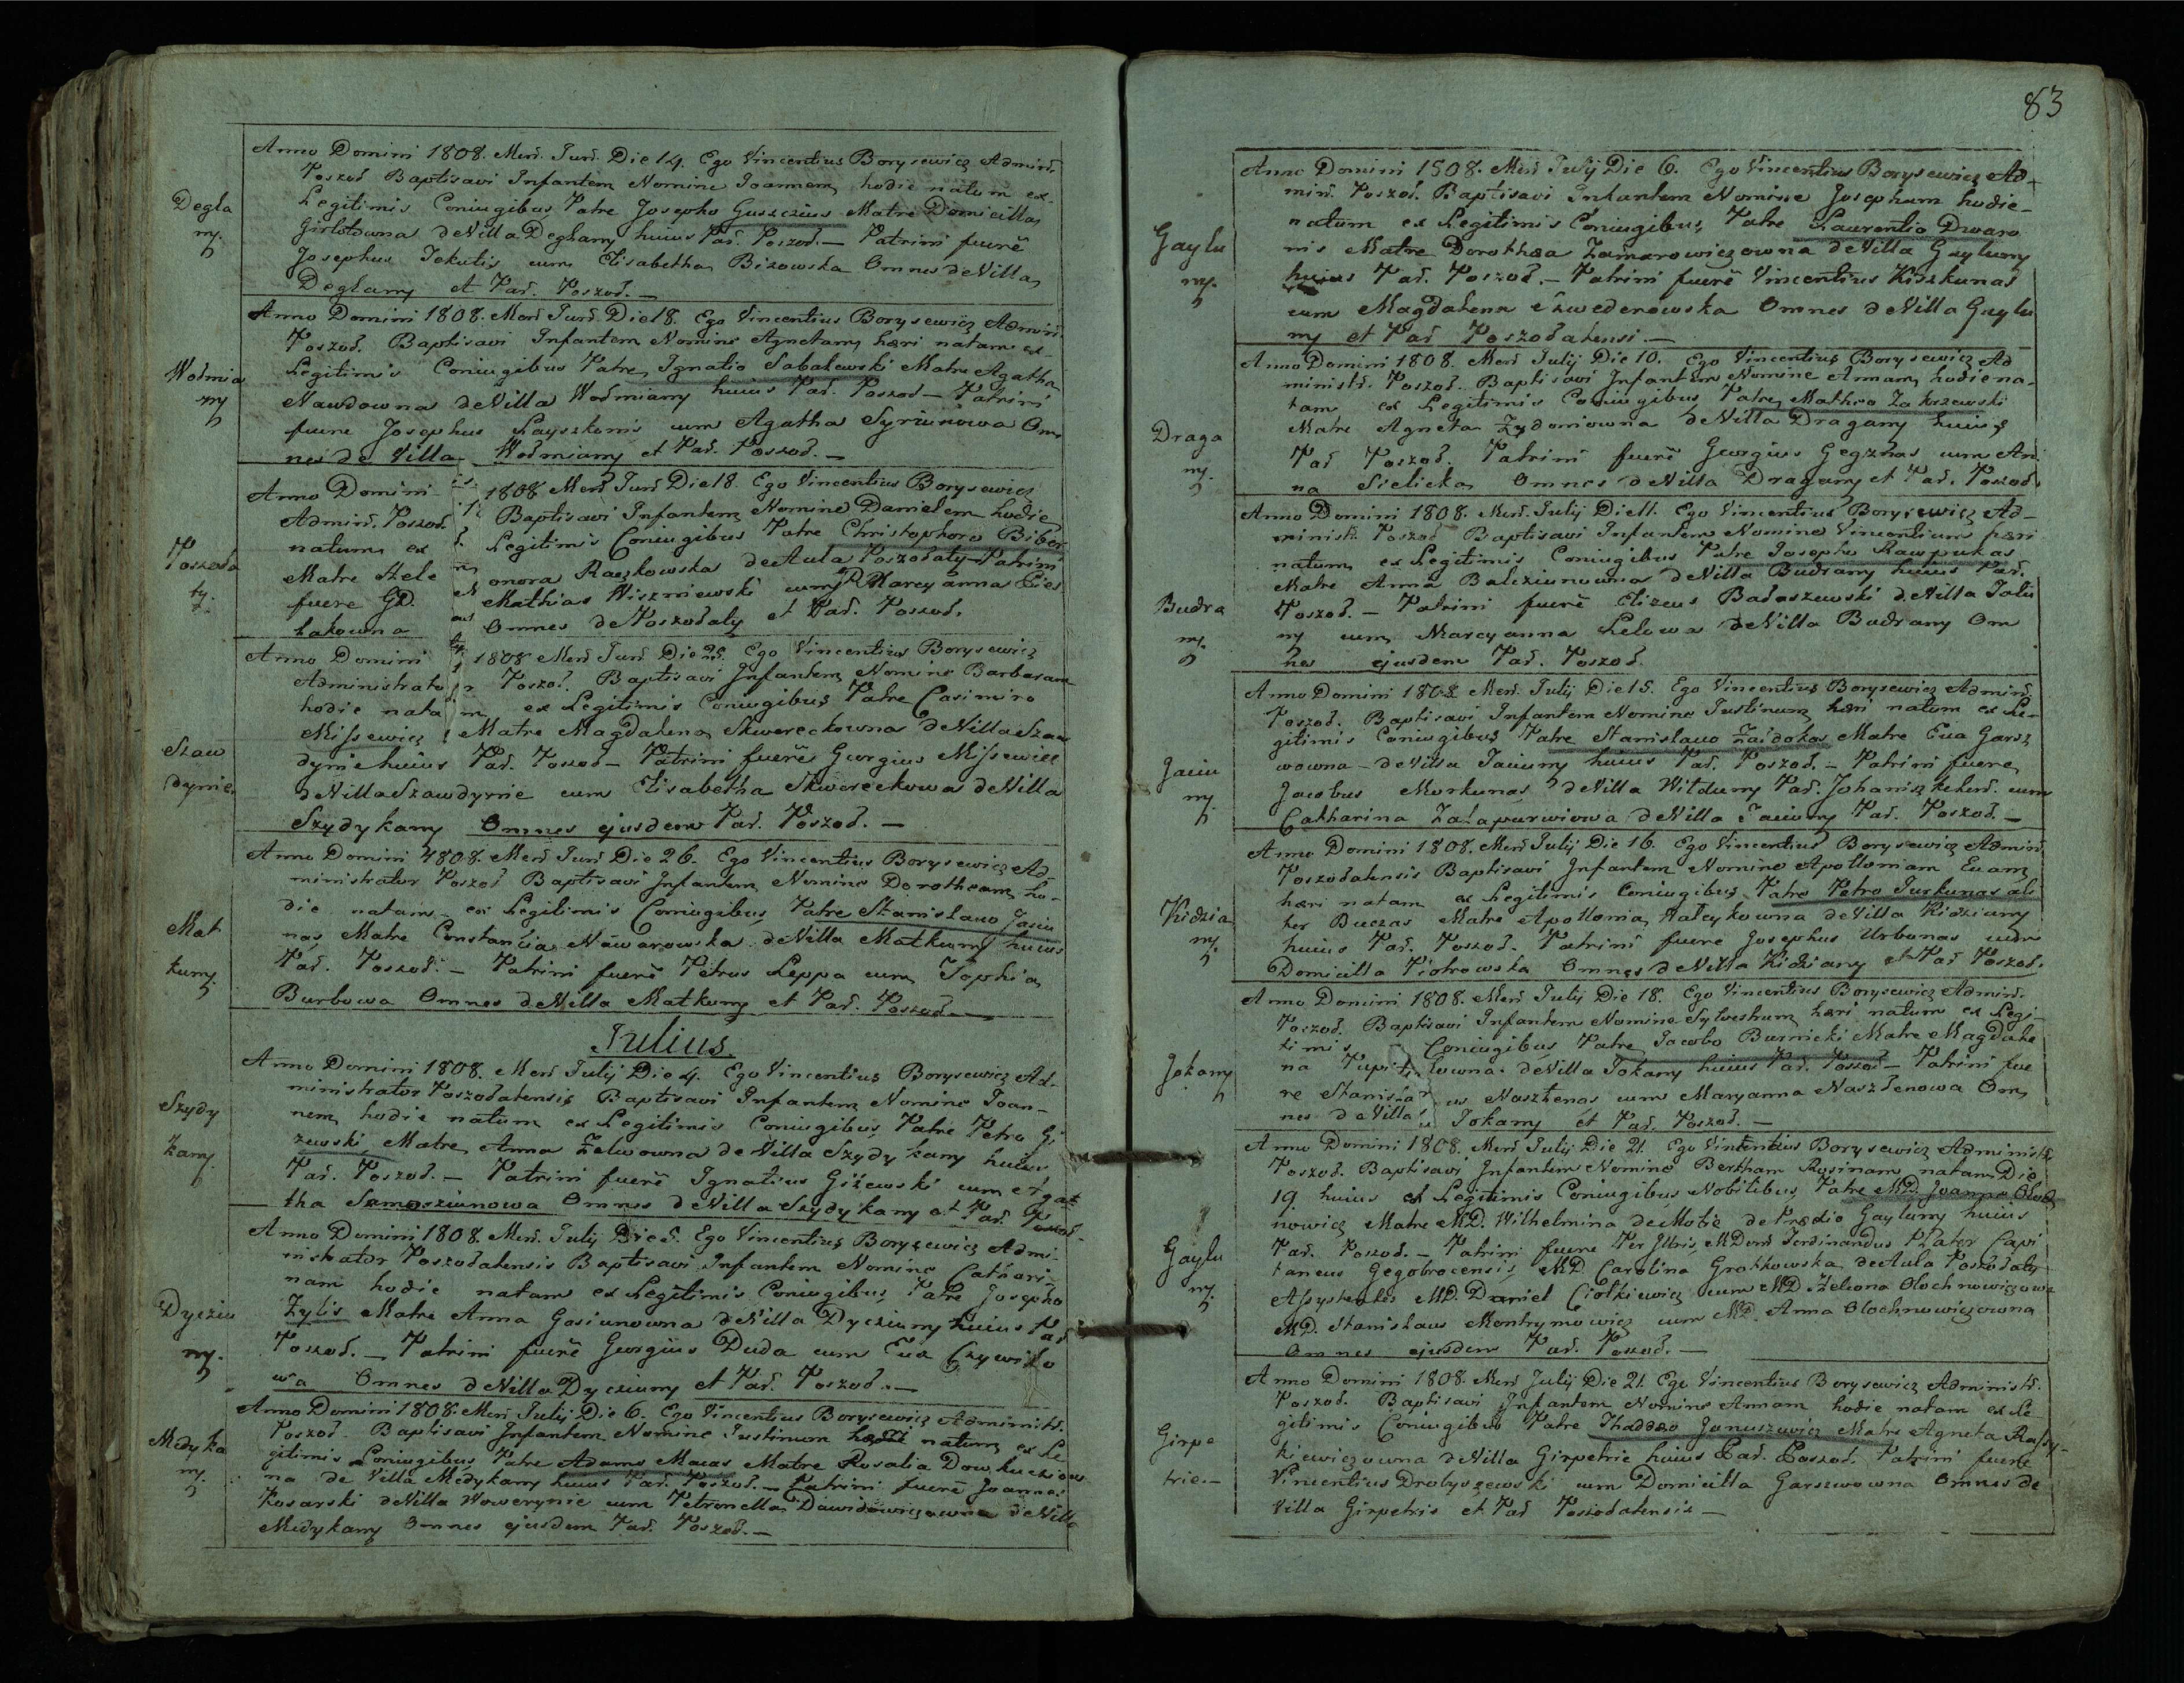 Degla
ny.
Anno Domini 1808. Mens. Juni. Die 14. Ego Vincentius Borysewicz Admini.
Poszoł Baptisavi Infantem Nomine Joannem hodie natum ex
Legitimis Coniugibus Patre Josepho Guszczius Matre Domicilla
Girlotowna de Villa Deglany huius Par. Poszoł. — Patrini fuerē
Josephus Jokutis cum Elisabetha Bizowska Omnes de Villa
Deglany et Par. Poszoł. —
Wołmia
ny
Anno Domini 1808. Mens. Juni. Die 18. Ego Vincentius Borysewicz Admini.
Poszoł. Baptisavi Infantem Nomine Agnetam hæri natam ex
Legitimis Coniugibus Patre Ignatio Sabalewski Matre Agatha
Nawdowna de Villa Wołmiany huius Par. Poszoł — Patrini
fuere Josephus Layszkonis cum Agatha Syriunowa Om
nes de Villa Wołmiany et Par. Poszoł. —
Poszoła
ty.
Anno Domini 1808 Mens Juni Die 18. Ego Vincentius Borysewicz
Admini. Poszoł. Baptisavi Infantem Nomine Danielem hodie
natum ex Legitimis Coniugibus Patre Christophoro Bibor
Matre Hele onora Raczkowska de Aula Poszołaty Patrini
fuere GD. Mathias Wiszniewski cum Marcyanna Cies
łakowna Omnes de Poszołaty et Par. Poszoł.
Szaw
dynie.
Anno Domini 1808 Mens Juni Die 25. Ego Vincentius Borysewicz
Administrato r Poszoł. Baptisavi Infantem Nomine Barbaram
hodie nata m ex Legitimis Coniugibus Patre Casimiro
Missewicz Matre Magdalena Skwereckowna de Villa Szaw
dynie huius Par. Poszoł — Patrini fuerē Georgius Missewicz
de Villa Szawdynie cum Elisabetha Skwereckowa de Villa
Szydykany Omnes ejusdem Par. Poszoł. —
Mat
kuny.
Anno Domini 1808. Mens. Juni Die 26. Ego Vincentius Borysewicz Ad-
ministrator Poszoł Baptisavi Infantem Nomine Dorotheam ho-
die natam ex Legitimis Coniugibus Patre Stanislauo Jasiu
nas Matre Constancia Nawarowska de Villa Matkuny huius
Par. Poszoł. — Patrini fuerē Petrus Leppa cum Sophia
Burbowa Omnes de Villa Matkuny et Par. Poszoł. —
Julius.
Szydy
kany.
Anno Domini 1808. Mens Julij Die 4. Ego Vincentius Borysewicz Ad-
ministrator Poszołatensis Baptisavi Infantem Nomine Joan-
nem hodie natum ex Legitimis Coniugibus Patre Petro Gi
zewski Matre Anna Zelwowna de Villa Szydykany huius
Par. Poszoł. — Patrini fuerē Ignatius Giżewski cum Aga
tha Samosziunowa Omnes de Villa Szydykany et Par. Poszoł.
Dycziu
ny.
Anno Domini 1808 Mens. Julij Die 5. Ego Vincentius Borysewicz Admi-
nistrator Poszołatensis Baptisavi Infantem Nomine Cathari-
nam hodie natam ex Legitimis Coniugibus Patre Josepho
Zylis Matre Anna Gasiunowna de Villa Dycziuny huius Par
Poszoł. — Patrini fuerē Georgius Duda cum Eva Czywilo
wa Omnes de Villa Dycziuny et Par. Poszoł. —
Medyka
ny.
Anno Domini 1808. Mens Julij Die 6. Ego Vincentius Borysewicz Administ.
Poszoł. Baptisavi Infantem Nomine Justinum hæri natum ex Le
gitimis Coniugibus Patre Adamo Macas Matre Rosalia Dowkucziow
na de Villa Medykany huius Par. Poszoł. — Patrini fuerē Joannes
Kosarski de Villa Nowerynie cum Petronella Dawidowiczowna de Villa
Medykany Omnes ejusdem Par. Poszoł. —
83
Gaylu
ny.
Anno Domini 1808. Mens Julij Die 6. Ego Vincentius Borysewicz Ad-
min. Poszoł. Baptisavi Infantem Nomine Josephum hodie-
natum ex Legitimis Coniugibus Patre Laurentio Dwaro
nis Matre Dorothæa Zamarowiczowna de Villa Gayluny
huius Par. Poszoł. — Patrini fuerē Vincentius Kiszkunas
cum Magdalena Szwederowska Omnes de Villa Gaylu
ny et Par Poszołatensi. —
Draga
ny.
Anno Domini 1808. Mens Julij Die 10. Ego Vincentius Borysewicz Ad
ministr. Poszoł. Baptisavi Infantem Nomine Annam hodie na-
tam ex Legitimis Coniugibus Patre Matheo Zakrzewski
Matre Agneta Zydoniowna de Villa Dragany huius
Par Poszoł. Patrini fuerē Georgius Gegznas cum An
na Sielicka Omnes de Villa Dragany et Par. Poszoł.
Budra
ny.
Anno Domini 1808. Mens. Julij Die 11. Ego Vincentius Borysewicz Ad-
ministr. Poszoł Baptisavi Infantem Nomine Vincentium hæri
natum ex Legitimis Coniugibus Patre Josepho Rawpukas
Matre Anna Balcziunowna de Villa Budrany huius Par.
Poszoł. — Patrini fuerē Elizeus Badaszewski de Villa Jalu
ny cum Marcyanna Lelowa de Villa Budrany Om
nes ejusdem Par. Poszoł.
Jaiu
ny.
Anno Domini 1808 Mens. Julij Die 15. Ego Vincentius Borysewicz Admini.
Poszoł. Baptisavi Infantem Nomine Justinum hæri natum ex Le-
gitimis Coniugibus Patre Stanislauo Zaidokas Matre Eva Garsz
wowna — de Villa Jaiuny huius Par. Poszoł. — Patrini fuere
Jacobus Morkunas de Villa Wituny Par. Johaniszkelens. cum
Catharina Załapurwiowa de Villa Jaiuny Par. Poszoł. —
Kidzia
ny.
Anno Domini 1808. Mens Julij Die 16. Ego Vincentius Borysewicz Admini.
Poszołatensis Baptisavi Infantem Nomine Apolloniam Euam
hæri natam ex Legitimis Coniugibus Patre Petro Turkunas ali
ter Buczas Matre Apollonia Hałeykowna de Villa Kidziany
huius Par. Poszoł. Patrini fuere Josephus Urbonas cum
Domicilla Piotrowska Omnes de Villa Kidziany et Par Poszoł.
Jokany
Anno Domini 1808. Mens Julij Die 18. Ego Vincentius Borysewicz Admini.
Poszoł. Baptisavi Infantem Nomine Sylvestrum hæri natum ex Legi-
timis Coniugibus Patre Jacobo Burnicki Matre Magdale
na Kupi lowna de Villa Jokany huius Par. Poszoł — Patrini fue
re Stanisla us Naszlenas cum Maryanna Naszlenowa Om
nes de Villa Jokany et Par. Poszoł. —
Gaylu
ny.
Anno Domini 1808. Mens Julij Die 21. Ego Vincentius Borysewicz Administr.
Poszoł. Baptisavi Infantem Nomine Bertham Rosinam natam Die
19. huius ex Legitimis Coniugibus Nobilibus Patre MD. Joanne Oloch
nowicz Matre MD. Wilhelmina de Motie de Prædio Gayluny huius
Par. Poszoł. — Patrini fuere Per Illris MDnus Ferdinandus Plater Capi
taneus Gegobrocensis MD. Carolina Grotkowska de Aula Poszołaty
Assystentes MD. Daniel Ciołkiewicz cum MD. Helena Olochnowiczowa
MD. Stanislaus Montrymowicz cum MD. Anna Olochnowiczowna
Omnes ejusdem Par. Poszoł. —
Girpe
trie. —
Anno Domini 1808. Mens Julij Die 21. Ego Vincentius Borysewicz Administr.
Poszoł. Baptisavi Infantem Nomine Annam hodie natam ex Le
gitimis Coniugibus Patre Thaddæo Januszewicz Matre Agneta Rassy-
kiewiczowna de Villa Girpetrie huius Par. Poszoł. Patrini fuerē
Vincentius Drobyszewski cum Domicilla Garszwowna Omnes de
Villa Girpetris et Par Poszołatensis —